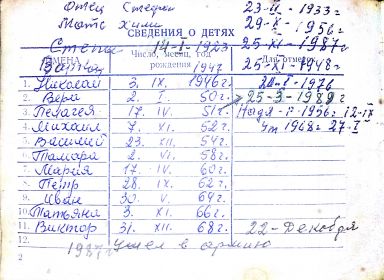 Отец Степан 23-II-1933г
Мать Хими 29-X-1956г
СВЕДЕНИЯ О ДЕТЯХ
Степа 14-I-1923 25-XI-1987г
Число, месяц, год рождения
Для отметок
ИМЕНА
1947 26-XI-1948г
1. Николай 3. IX. 1946г. 1976
2. Вера 2. I. 50г. 25-3-1989г
3. Пелагея 17. IV. 51г. Надя-I-1956г. 12-IX
4. Михаил 7. XI. 52г. Ум 1968г 27-I
5. Василий 23. XII. 54г.
6. Тамара 2. VI. 58г.
7. Мария 17. IV. 60г.
8. Петр 28. IX. 62г.
9. Иван 30. V. 64г.
10. Татьяна 3. XI. 66г.
11. Виктор 31. XII. 68г. 22-Декабря
12. 1987г ушел в армию
2